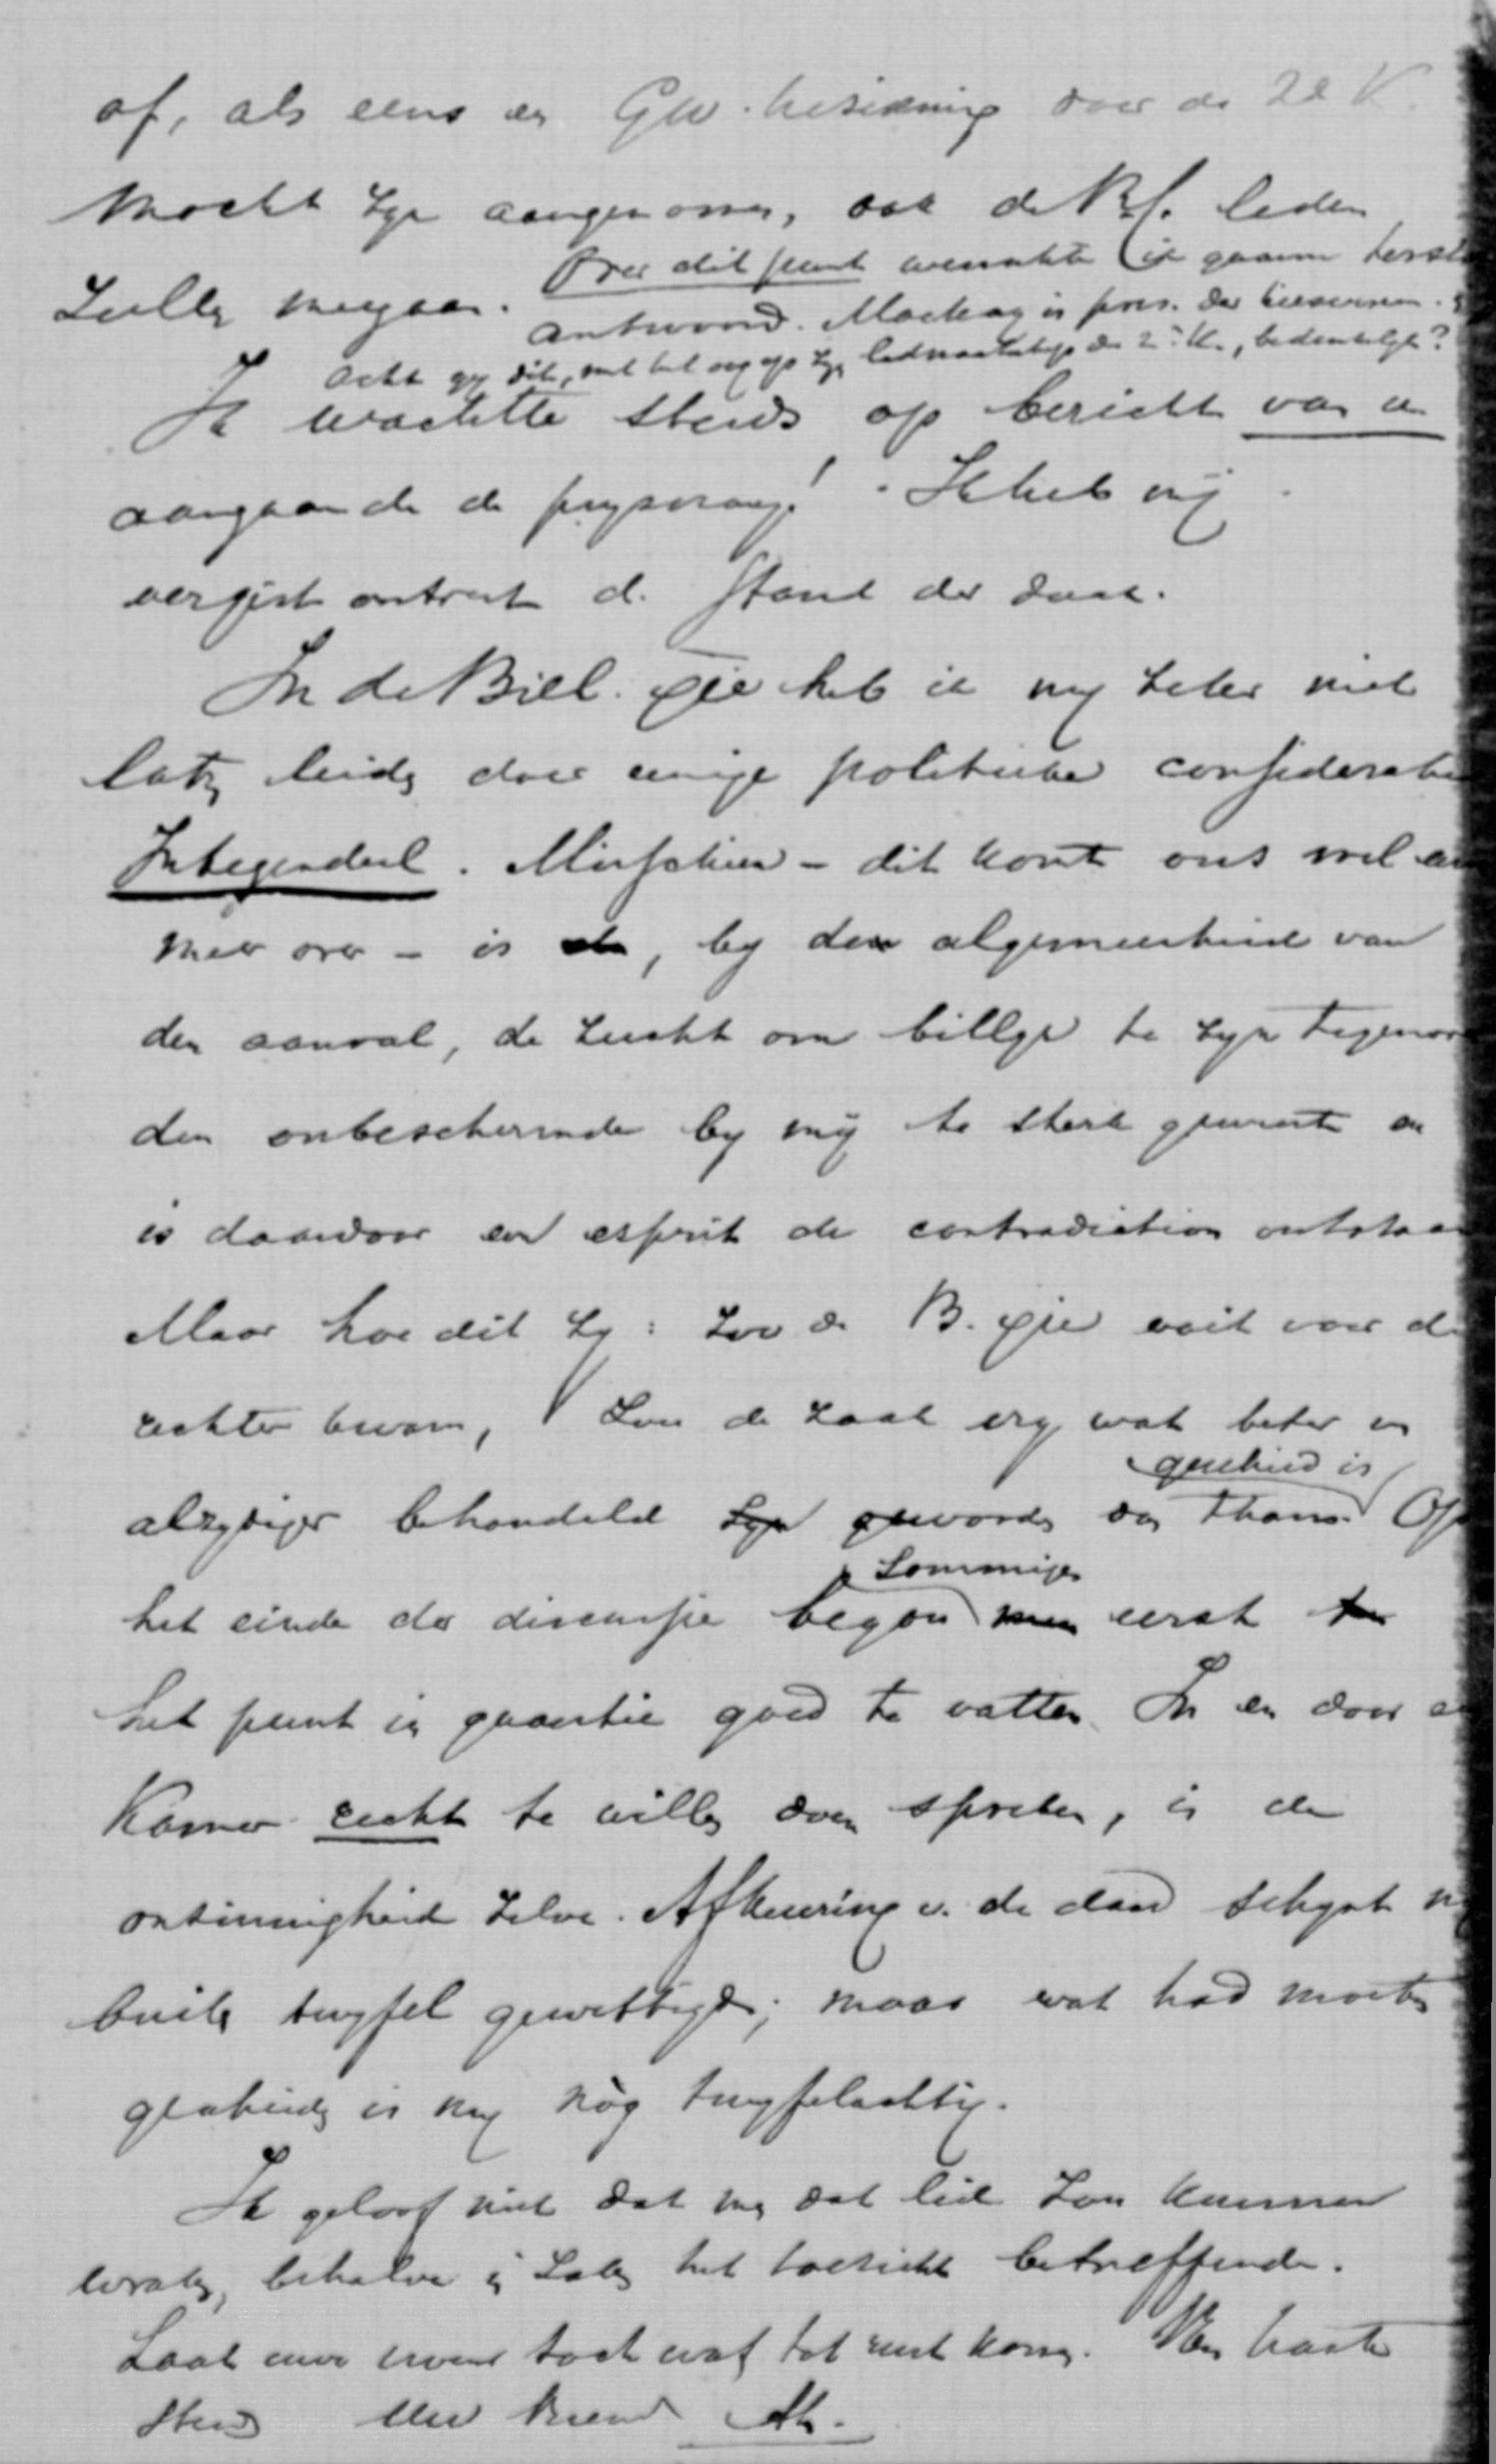 of, als eens een GW. herziening door de 2e K.
mocht zyn aangenomen, ook de Rf. leden
zullen meegaan.
Over dit punt wenschte ik gaarne
antwoord. Mackay is pres. der
Acht gy dit, met het oog op zyn lidmaatschap der 2e K., bedenkelyk?
Ik wachtte steeds op bericht van u
aangaande de prysvraag! Ik heb mij
vergist omtrent de stand der zaak.
In de Bill. qie heb ik my zeker niet
laten leiden door eenige politieke consideratie
Integendeel. Misschien – dit komt ons wel
meer over – is, by de algemeenheid van
den aanval, de zucht om billyk te zyn tegenover
den onbeschermde by mij te sterk geweest en
is daardoor een esprit de contradiction ontstaan
Maar hoe dit zy: zoo de B. qie ooit voor de
rechter kwam, zou de zaak erg wat beter en
alzydiger behandeld zyn geworden dan thans geschied is. Op
het einde der discussie begon men sommigen eerst
het punt in quaestie goed te vatten. In en door een
Kamer recht te willen doen spreken, is de
onzinnigheid zelve. Afkeuring v. de daad schynt my
buiten twyfel gewettigd; maar wat had moeten
geschieden is my nòg twyfelachtig.
Ik geloof niet dat my dat lid zou kunnen
behalve in zake het toezicht betreffende.
Laat uwe toch wat tot rust komen. Ver haaste
Steeds Uw vriend